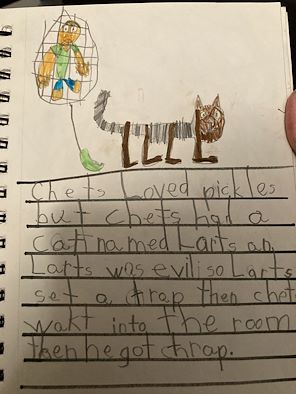 Chets Loved pickles
but chets had a
cat named Larts an
Larts was evil so Larts
set a trap then chet
wakt into the room
then he got thrap.